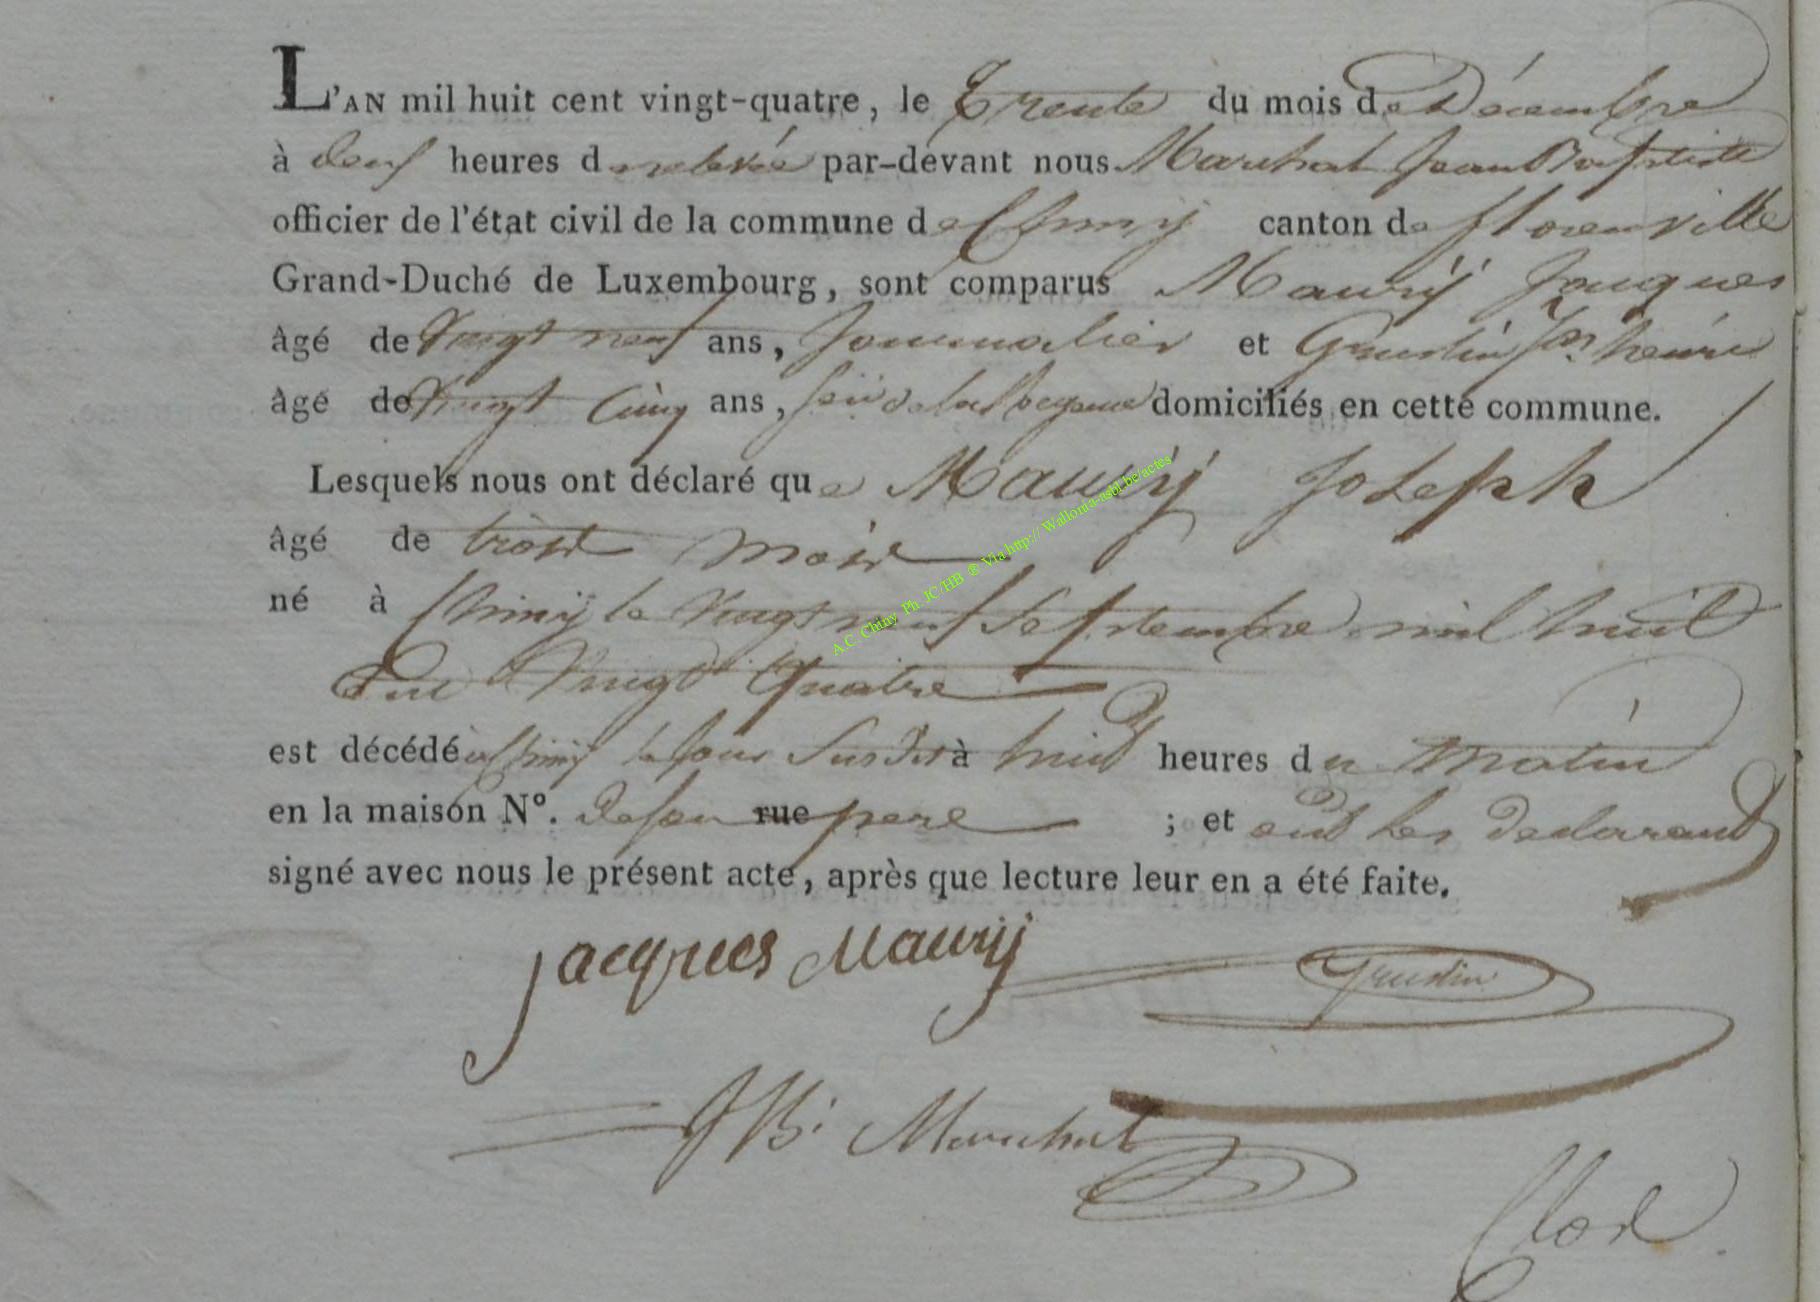 L'AN mil huit cent vingt-quatre, le Trente du mois de Décembre
à deux heures d relevée par-devant nous Marchal Jean Baptiste
officier de l'état civil de la commune de Chinÿ canton de florenville
Grand-Duché de Luxembourg, sont comparus Maurÿ Jacques
âgé de Vingt neuf ans, Journalier et Grustin henri
âgé de Vingt Cinq ans, domiciliés en cette commune.
Lesquels nous ont déclaré que Maurÿ Joseph
âgé de trois mois
né à Chinÿ le Vingt neuf Septembre mil huit
Cent Vingt Quatre
est décédé a Chinÿ le jour Susdit à huit heures du matin
en la maison N°. de son rue pere ; et ont les declarants
signé avec nous le présent acte, après que lecture leur en a été faite.
Jacques Maurÿ Grustin
JB. Marchal
Clos
A.C. Chiny Ph. JC/HB ® Via http:// Wallonia-asbl.be/actes